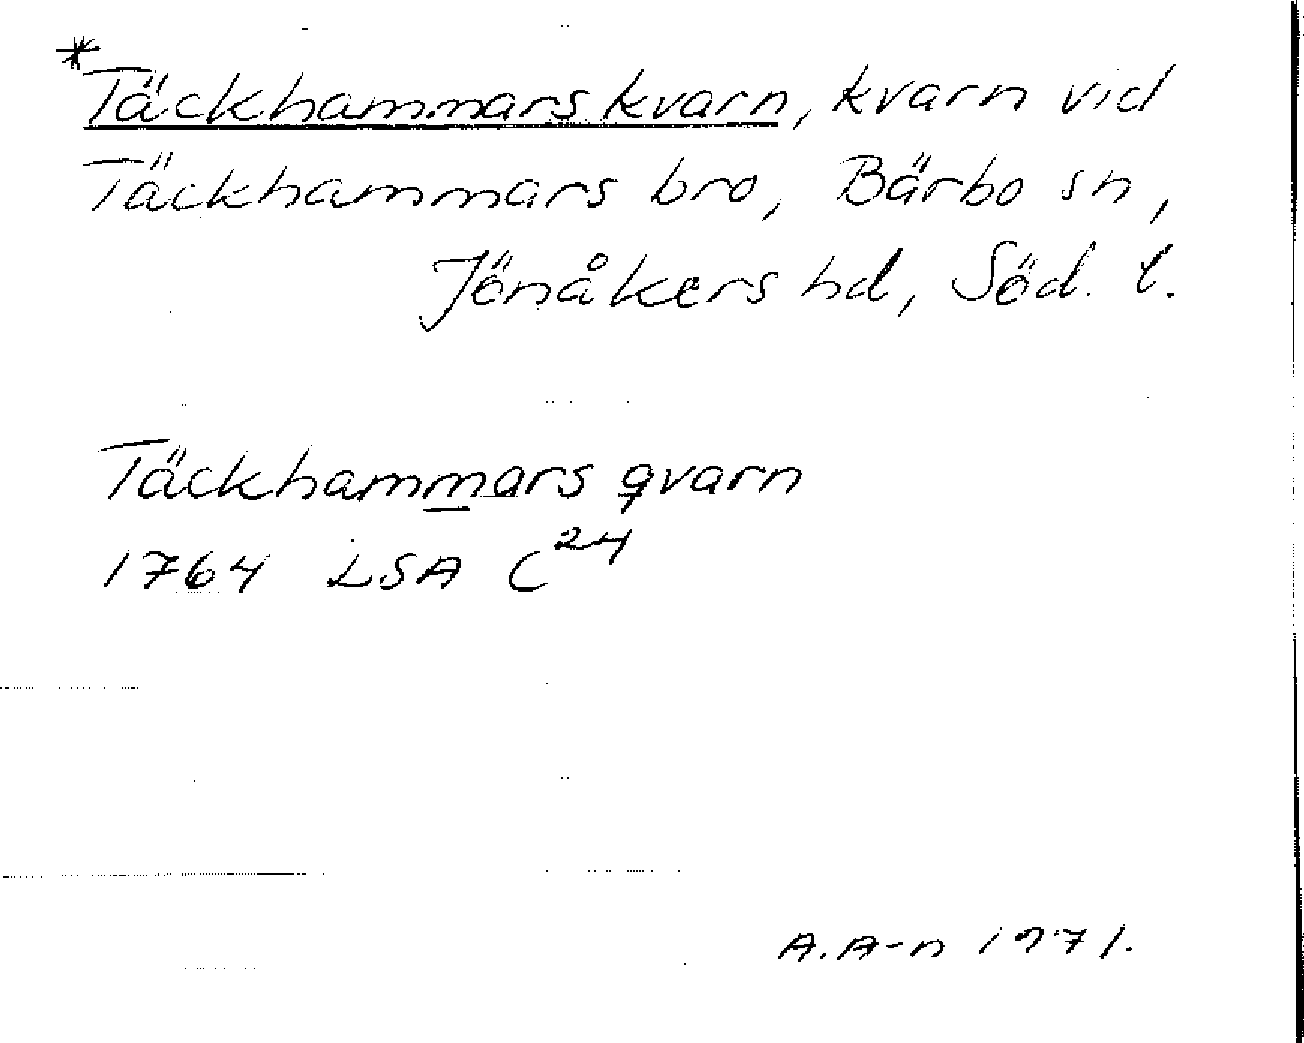 * Täckhammars kvarn, kvarn vid
Täckhammars bro, Bärbo sn,
Jönåkers hd, Söd. l.
Täckhammars qvarn
1764 LSA C24
A.A-n 1971.